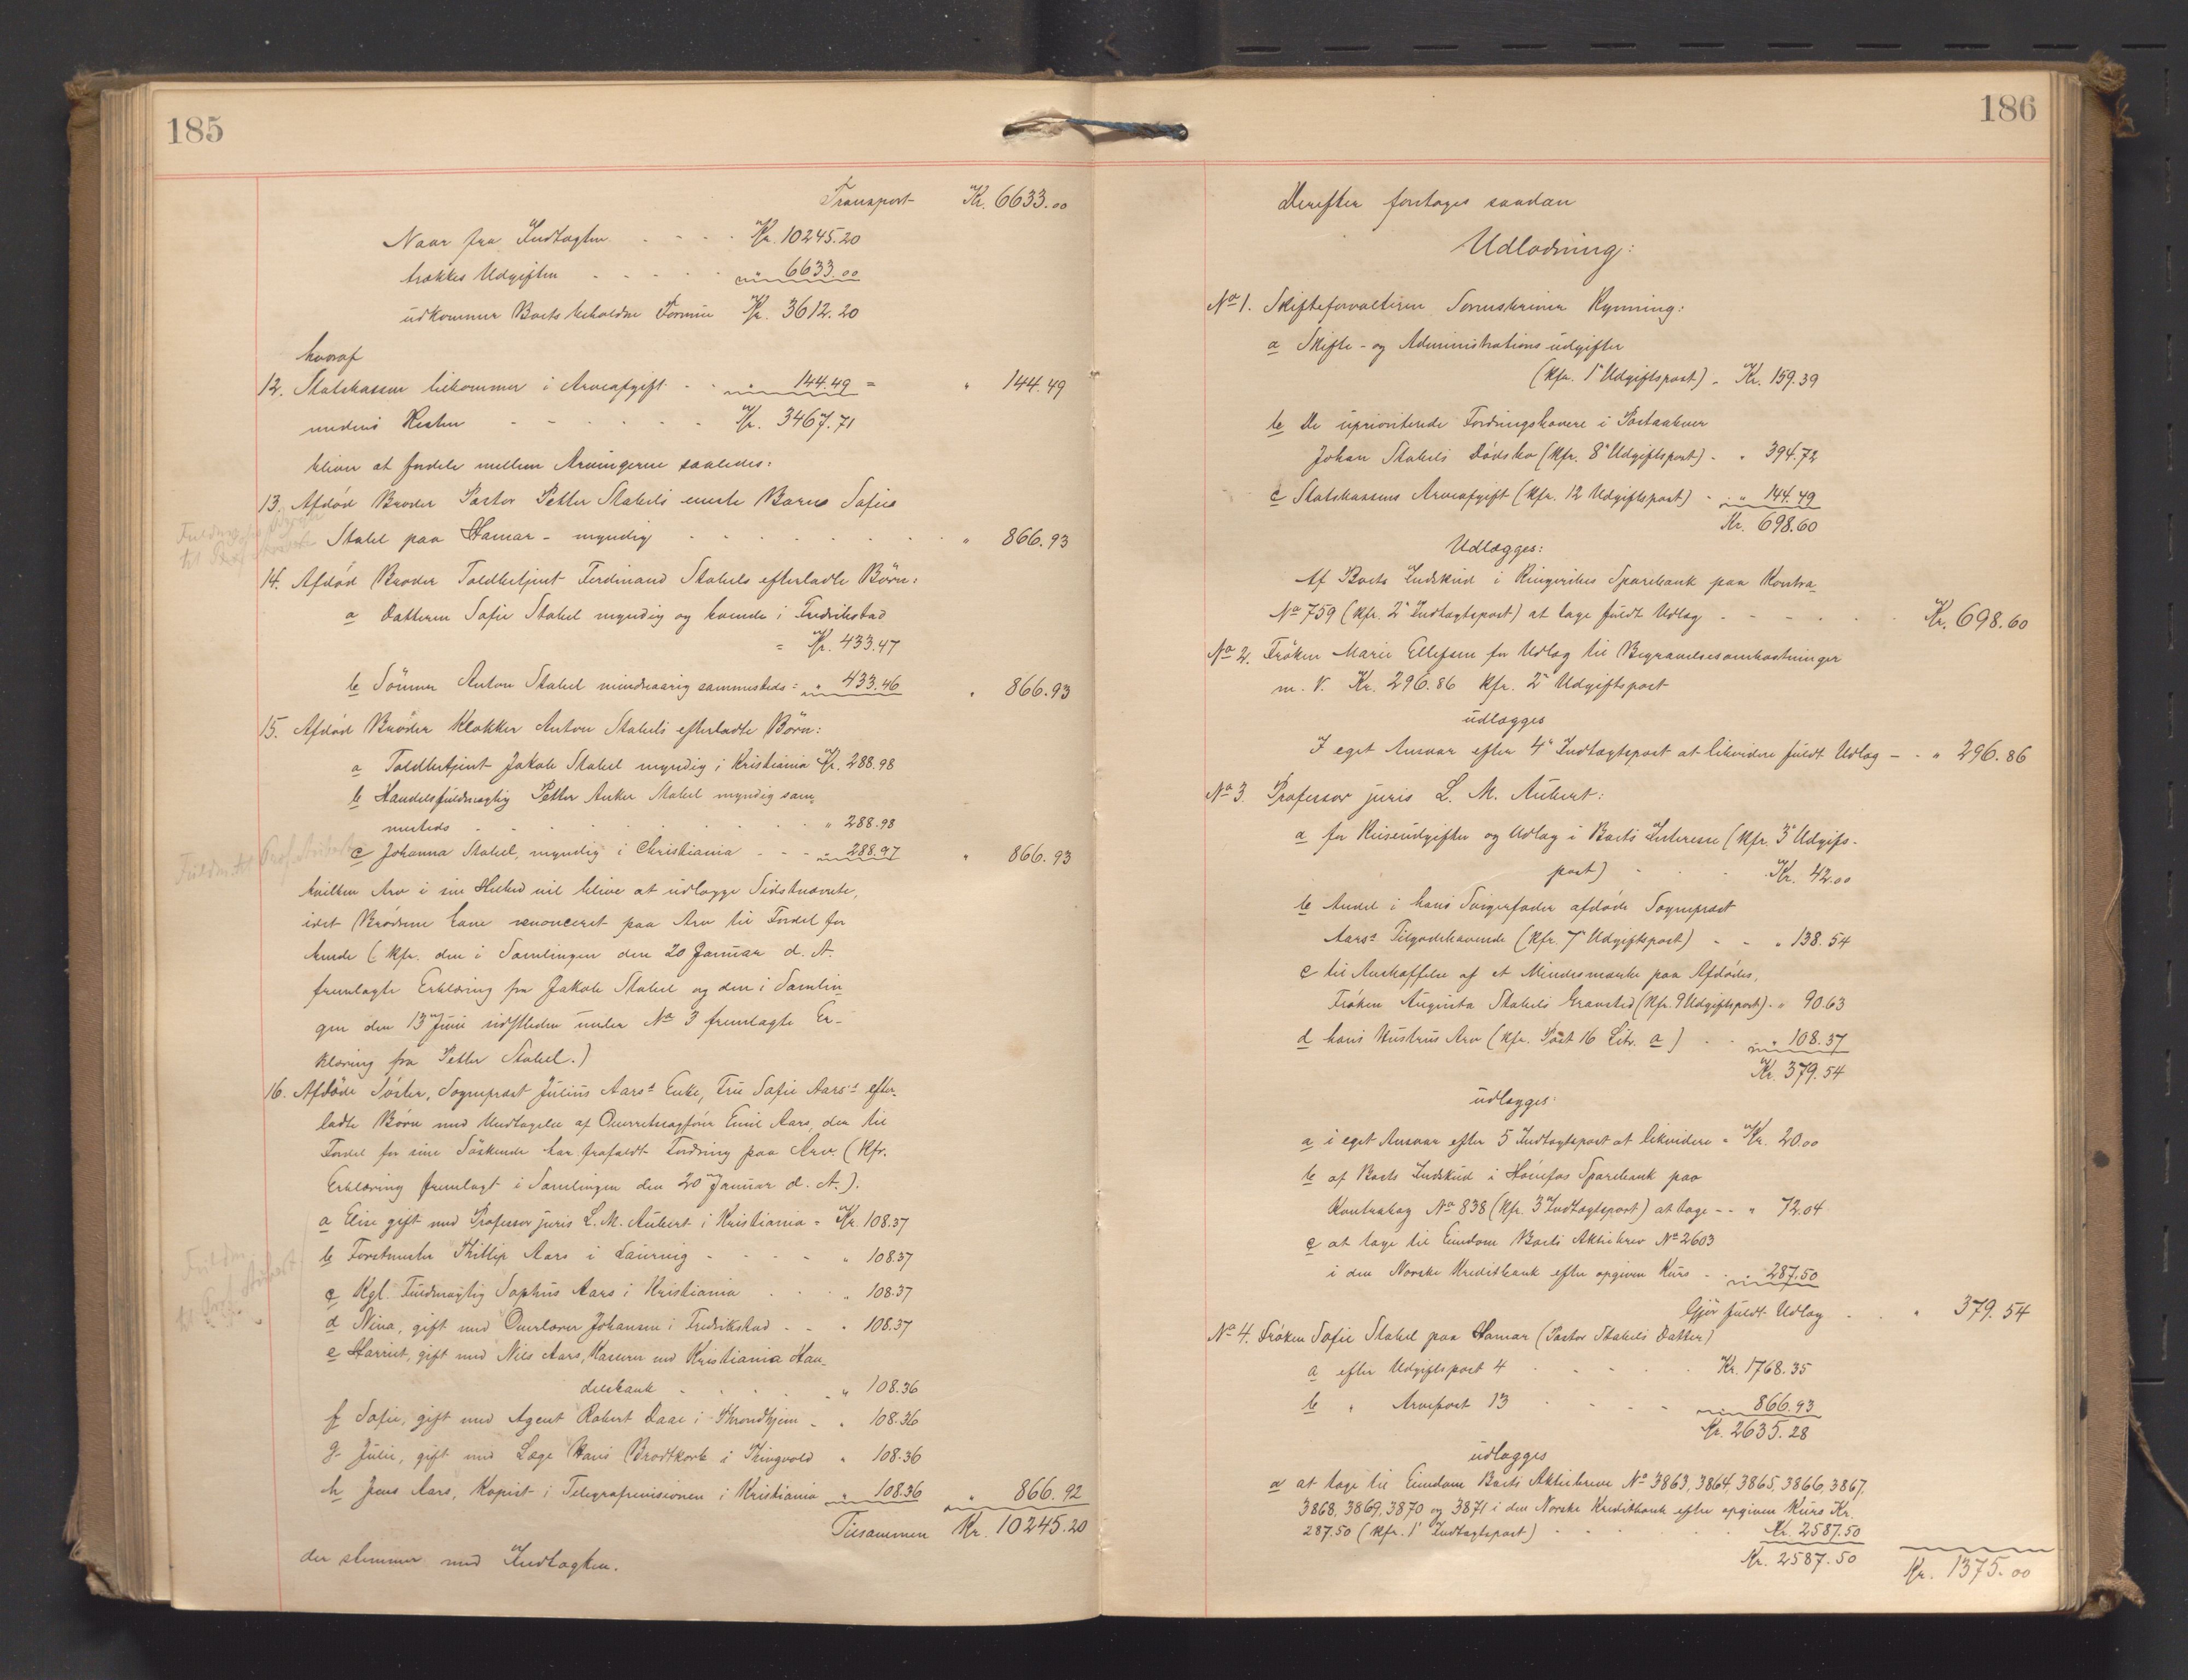 185
Transport Kr. 6633.00
Naar fra Indtægten - - - Kr. 10245.20
trækkes Udgiften - - - - - " 6633.00
udkommer Boets beholdne Formue Kr. 3612.20
hvoraf
12. Statskassen tilkommer i Arveafgift - - " 144.49 = " 144.49
medens Resten - - - - - - Kr. 3467.71
bliver at fordele mellem Arvingerne saaledes:
13. Afdød Broder Pastor Petter Stabels eneste Barn Sofie
Stabel paa Hamar - myndig - - - - - - " 866.93
14. Afdød Broder Toldbetjent Ferdinand Stabels efterladte Börn:
a Datteren Sofie Stabel myndig og boende i Fredrikstad
= Kr. 433.47
b Sönnen Anton Stabel mindreaarig sammesteds = " 433.46 " 866.93
15. Afdød Broder Klokker Anton Stabels efterladte Börn:
a Toldbetjent Jakob Stabel myndig i Kristiania Kr. 288.98
b Handelsfuldmægtig Petter Anker Stabel myndig sam-
mesteds - - - - - - - " 288.98
c Johanna Stabel, myndig i Christiania - - - " 288.97 " 866.93
hvilken Arv i sin Helhed vil blive at udlægge Sidstnævnte,
idet Brødrene have renonceret paa Arv til Fordel for
hende (Kfr. den i Samlingen den 20 Januar d. A.
fremlagte Erklæring fra Jakob Stabel og den i Samlin
gen den 13 Juni sidstleden under No 3 fremlagte Er-
klæring fra Petter Stabel.)
16. Afdöde Söster, Sogneprest Julius Aars's Enke, Fru Sofie Aars's efter-
ladte Börn med Undtagelse af Overretssagförer Emil Aars, der til
Fordel for sine Söskende har frafaldt Fordring paa Arv. (Kfr.
Erklæring fremlagt i Samlingen den 20 Januar d. A.).
a Elise gift med Professor juris L. M. Aubert i Kristiania = Kr. 108.37
b Forstmester Phillip Aars i Laurvig - - - - " 108.37
c Kgl. Fuldmægtig Sophus Aars i Kristiania - - - " 108.37
d Nina, gift med Overlærer Johansen i Fredrikstad - - " 108.37
e Harriet, gift med Nils Aars, Kasserer ved Kristiania Han-
delsbank - - - - " 108.36
f Sofie, gift med Agent Robert Daae i Throndhjem - " 108.36
g Julie, gift med Læge Hans Brodtkorb i Thingvold " 108.36
h Jens Aars, Kopist i Telegrafrevisionen i Kristiania " 108.36 " 866.92
Tilsammen Kr. 10245.20
der stemmer med Indtægten.
186
Derefter foretoges saadan
Udlodning:
No 1. Skifteforvalteren Sorenskriver Rynning:
a Skifte- og Administrationsudgifter
(Kfr. 1ste Udgiftspost) - Kr. 159.39
b De uprioriterede Fordringshavere i
Johan Stabels Dødsbo (Kfr. 8de Udgiftspost) - " 394.72
c Statskassens Arveafgift (Kfr. 12 Udgiftspost) - " 144.49
Kr. 698.60
Udlægges:
Af Boets Indskud i Ringerikes Sparebank paa Kontra
No 759 (Kfr. 2den Indtægtspost) at tage fuldt Udlæg - - - - Kr. 698.60
No 2. Fröken Marie Ellefsen for Udlæg til Begravelsesomkostninger
m. V. Kr. 296.86 Kfr. 2den Udgiftspost
udlægges
I eget Ansvar efter 4de Indtægtspost at likvidere fuldt Udlæg - - " 296.86
No 3 Professor juris L. M. Aubert:
a for Reiseudgifter og Udlæg i Boets Interesse (Kfr. 3die Udgifs-
post) - - Kr. 42.00
b Andel i hans Svigerfader afdøde Sogneprest
Aars's Tilgodehavende (Kfr. 7de Udgiftspost) - - " 138.54
c til Anskaffelse af et Mindesmærke paa Afdødes,
Fröken Augusta Stabels Gravsted (Kfr. 9 Udgiftspost) - " 90.63
d hans Hustrus Arv (Kfr. Post 16 Litr. a) - - " 108.37
Kr. 379.54
udlægges:
a i eget Ansvar efter 5 Indtægtspost at likvidere = Kr. 20.00
b af Boets Indskud i Hönefos Sparebank paa
Kontrabog No 838 (Kfr. 3 Indtægtspost) at tage - - " 72.04
c at tage til Eiendom Boets Aktiebrev No 2603
i den Norske Kreditbank efter opgiven Kurs - - " 287.50
Gjør fuldt Udlæg - " 379.54
No 4. Fröken Sofie Stabel paa Hamar (Pastor Stabels Datter)
a efter Udgiftspost 4 - - - Kr. 1768.35
b " Arvepost 13 - - - - " 866.93
Kr. 2635.28
udlægges
a at tage til Eiendom Boets Aktiebreve No 3863, 3864, 3865, 3866, 3867,
3868, 3869, 3870 og 3871 i den Norske Kreditbank efter opgiven Kurs Kr.
287.50 (Kfr. 1ste Indtægtspost) - - - Kr. 2587.50
Kr. 2587.50 Kr. 1375.00